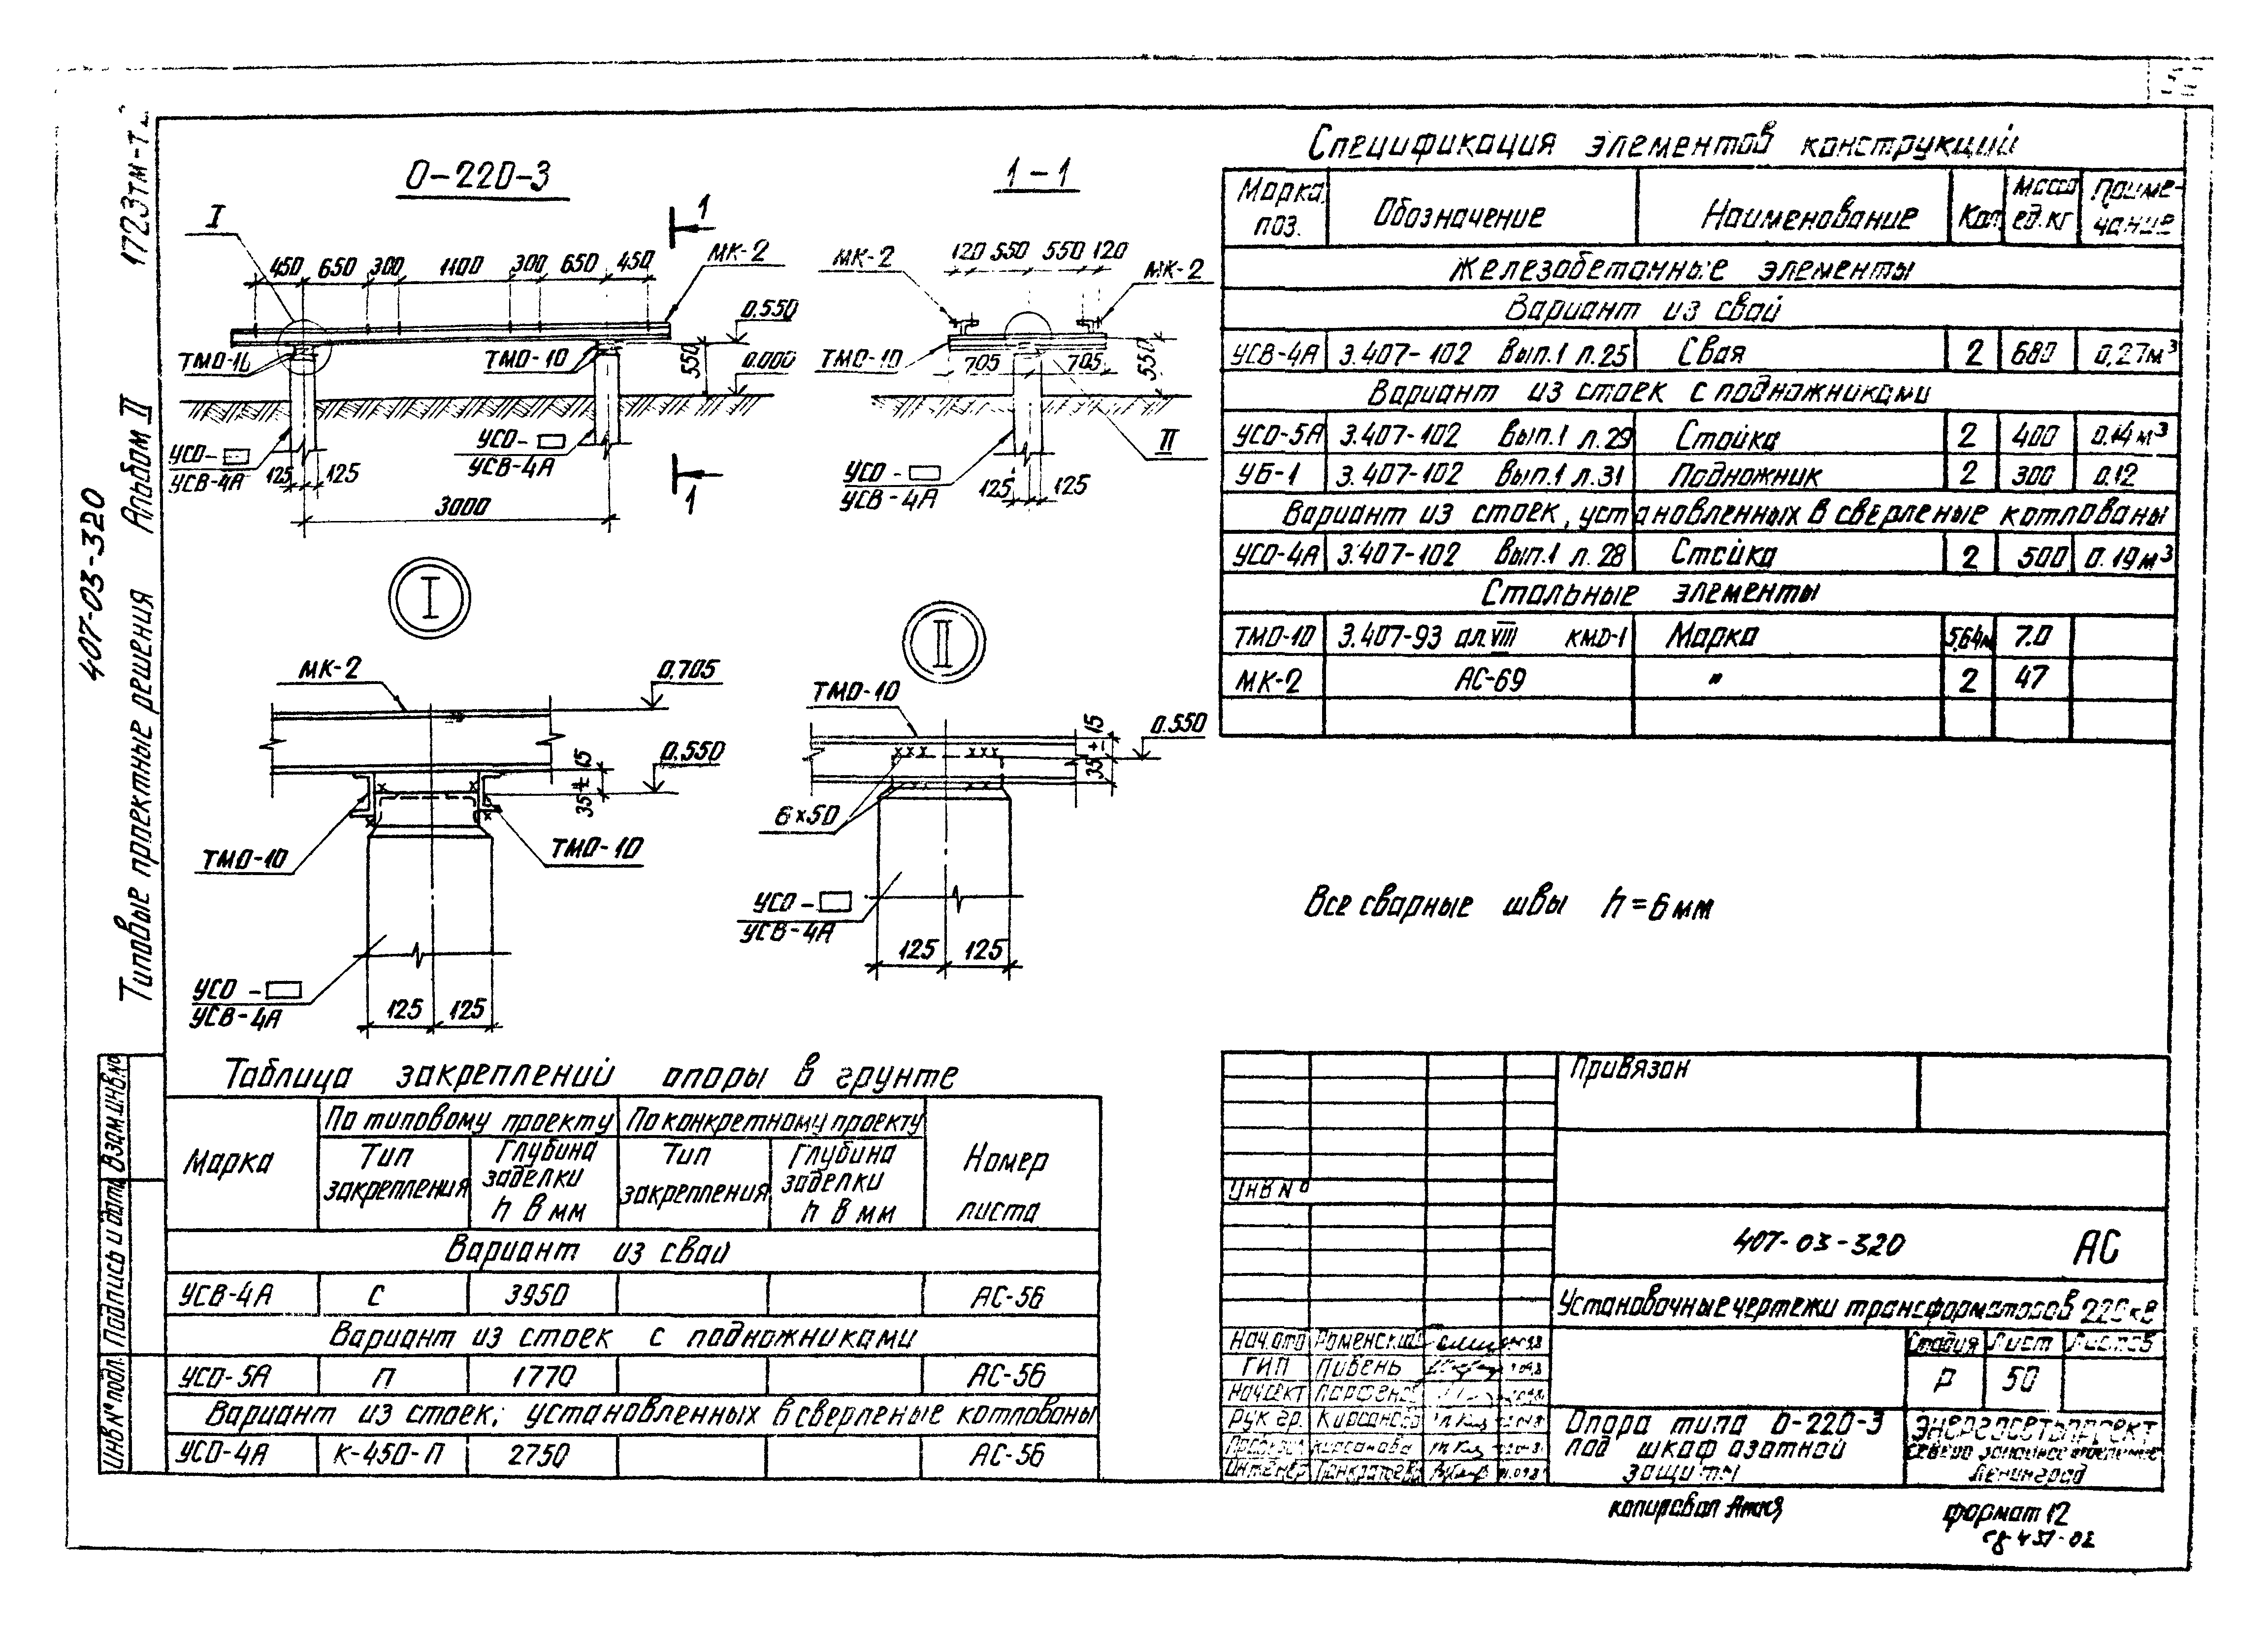 1723тм-т2
407-03-320
Типовые проектные решения Альбом II
О-220-3
I
1
МК-2
450 650 300 1100 300 650 450
0.550
ТМО-10
ТМО-10
550
0.000
УСО-
УСВ-4А
125 125
УСО-
УСВ-4А
3000
1
1-1
МК-2
120 550 550 120
МК-2
ТМО-10
705 705
550
УСО-
УСВ-4А
125 125
II
I
МК-2
0.705
0.550
35 ± 15
ТМО-10
ТМО-10
УСО-
УСВ-4А
125 125
II
ТМО-10
0.550
35 ± 15
6×50
УСО-
УСВ-4А
125 125
Спецификация элементов конструкций
Марка, поз. Обозначение Наименование Кол Масса ед.кг Приме-чание
Железобетонные элементы
Вариант из свай
УСВ-4А 3.407-102 Вып.1 л.25 Свая 2 680 0,27м³
Вариант из стоек с подножниками
УСО-5А 3.407-102 Вып.1 л.29 Стойка 2 400 0.14м³
УБ-1 3.407-102 Вып.1 л.31 Подножник 2 300 0.12
Вариант из стоек, установленных в сверленые котлованы
УСО-4А 3.407-102 Вып.1 л.28 Стойка 2 500 0.19м³
Стальные элементы
ТМО-10 3.407-93 ал.VIII КМО-1 Марка 5,64м 7.0
МК-2 АС-69 " 2 47
Все сварные швы h=6мм
Таблица закреплений опоры в грунте
Марка По типовому проекту По конкретному проекту Номер листа
Тип закрепления Глубина заделки h в мм Тип закрепления Глубина заделки h в мм
Вариант из свай
УСВ-4А С 3950 АС-56
Вариант из стоек с подножниками
УСО-5А П 1770 АС-56
Вариант из стоек; установленных в сверленые котлованы
УСО-4А К-450-П 2750 АС-56
Взам.инв.но
Подпись и дата
Инв№подл.
Привязан
Инв №
407-03-320 АС
Установочные чертежи трансформаторов 220кв
Нач.отд Роменский
ГИП Пивень
Нач.сект Парфенов
Рук гр. Кирсанова
Проверил Кирсанова
Инженер Панкратьева
Стадия Лист Листов
Р 50
Опора типа О-220-3
под шкаф азотной
защиты
Энергосетьпроект
Северо-западное отделение
Ленинград
копировал
формат 12